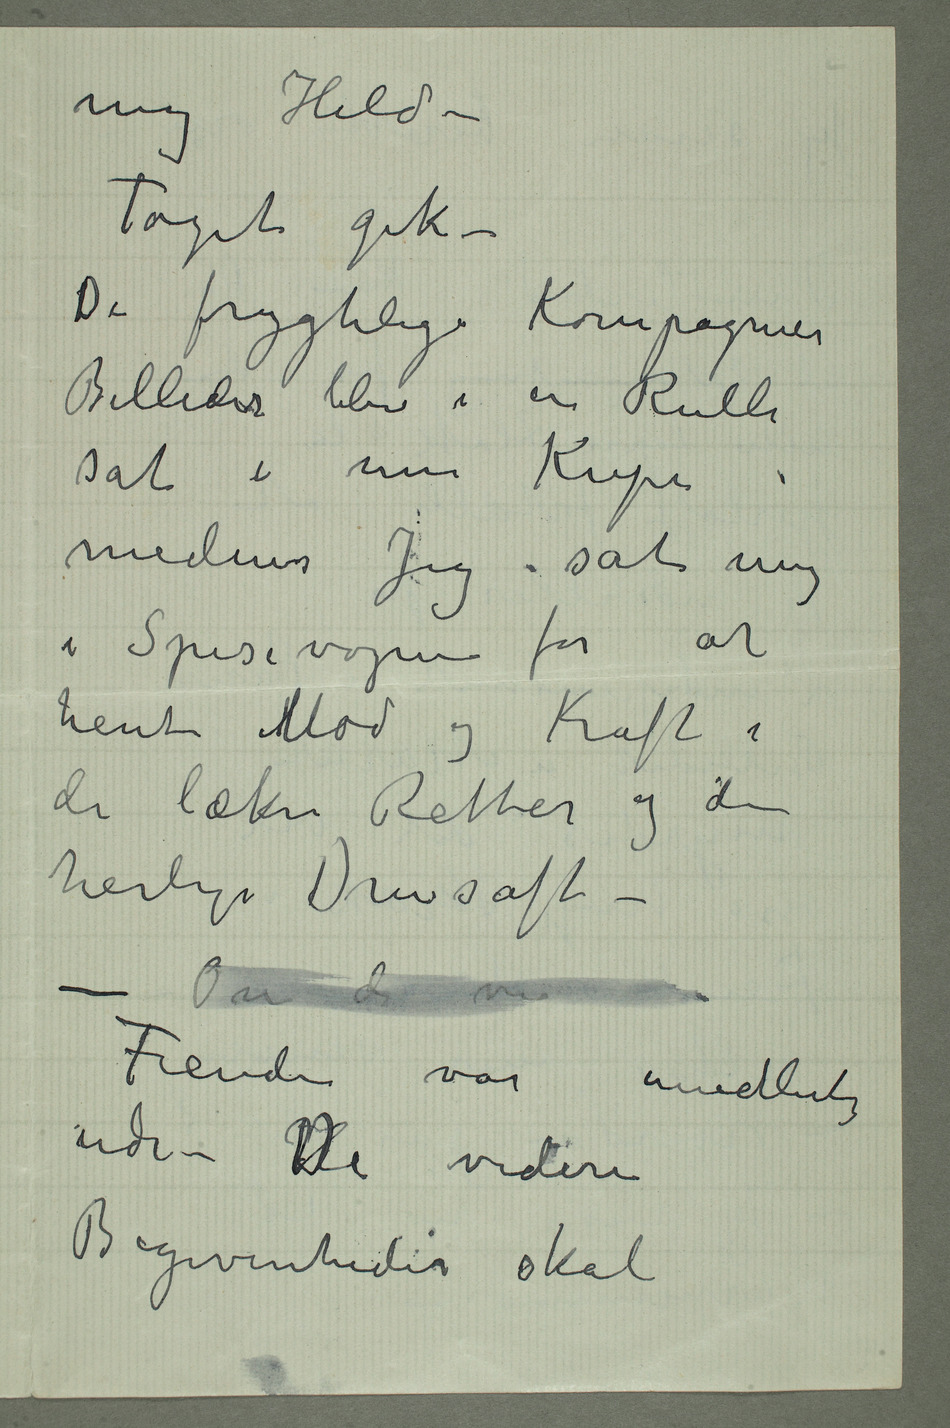 mig Held –
Toget gik –
De frygtelige Kompagnier
Billeder blev i en Rulle
sat i min Kupe
medens Jeg sat mig
i Spisevognen for at
hente Mod og Kraft i
de lækre Retter og den
herlige Druesaft –
– Om de
Fienden var umidlertid
ude – De videre
Begivenheder skal